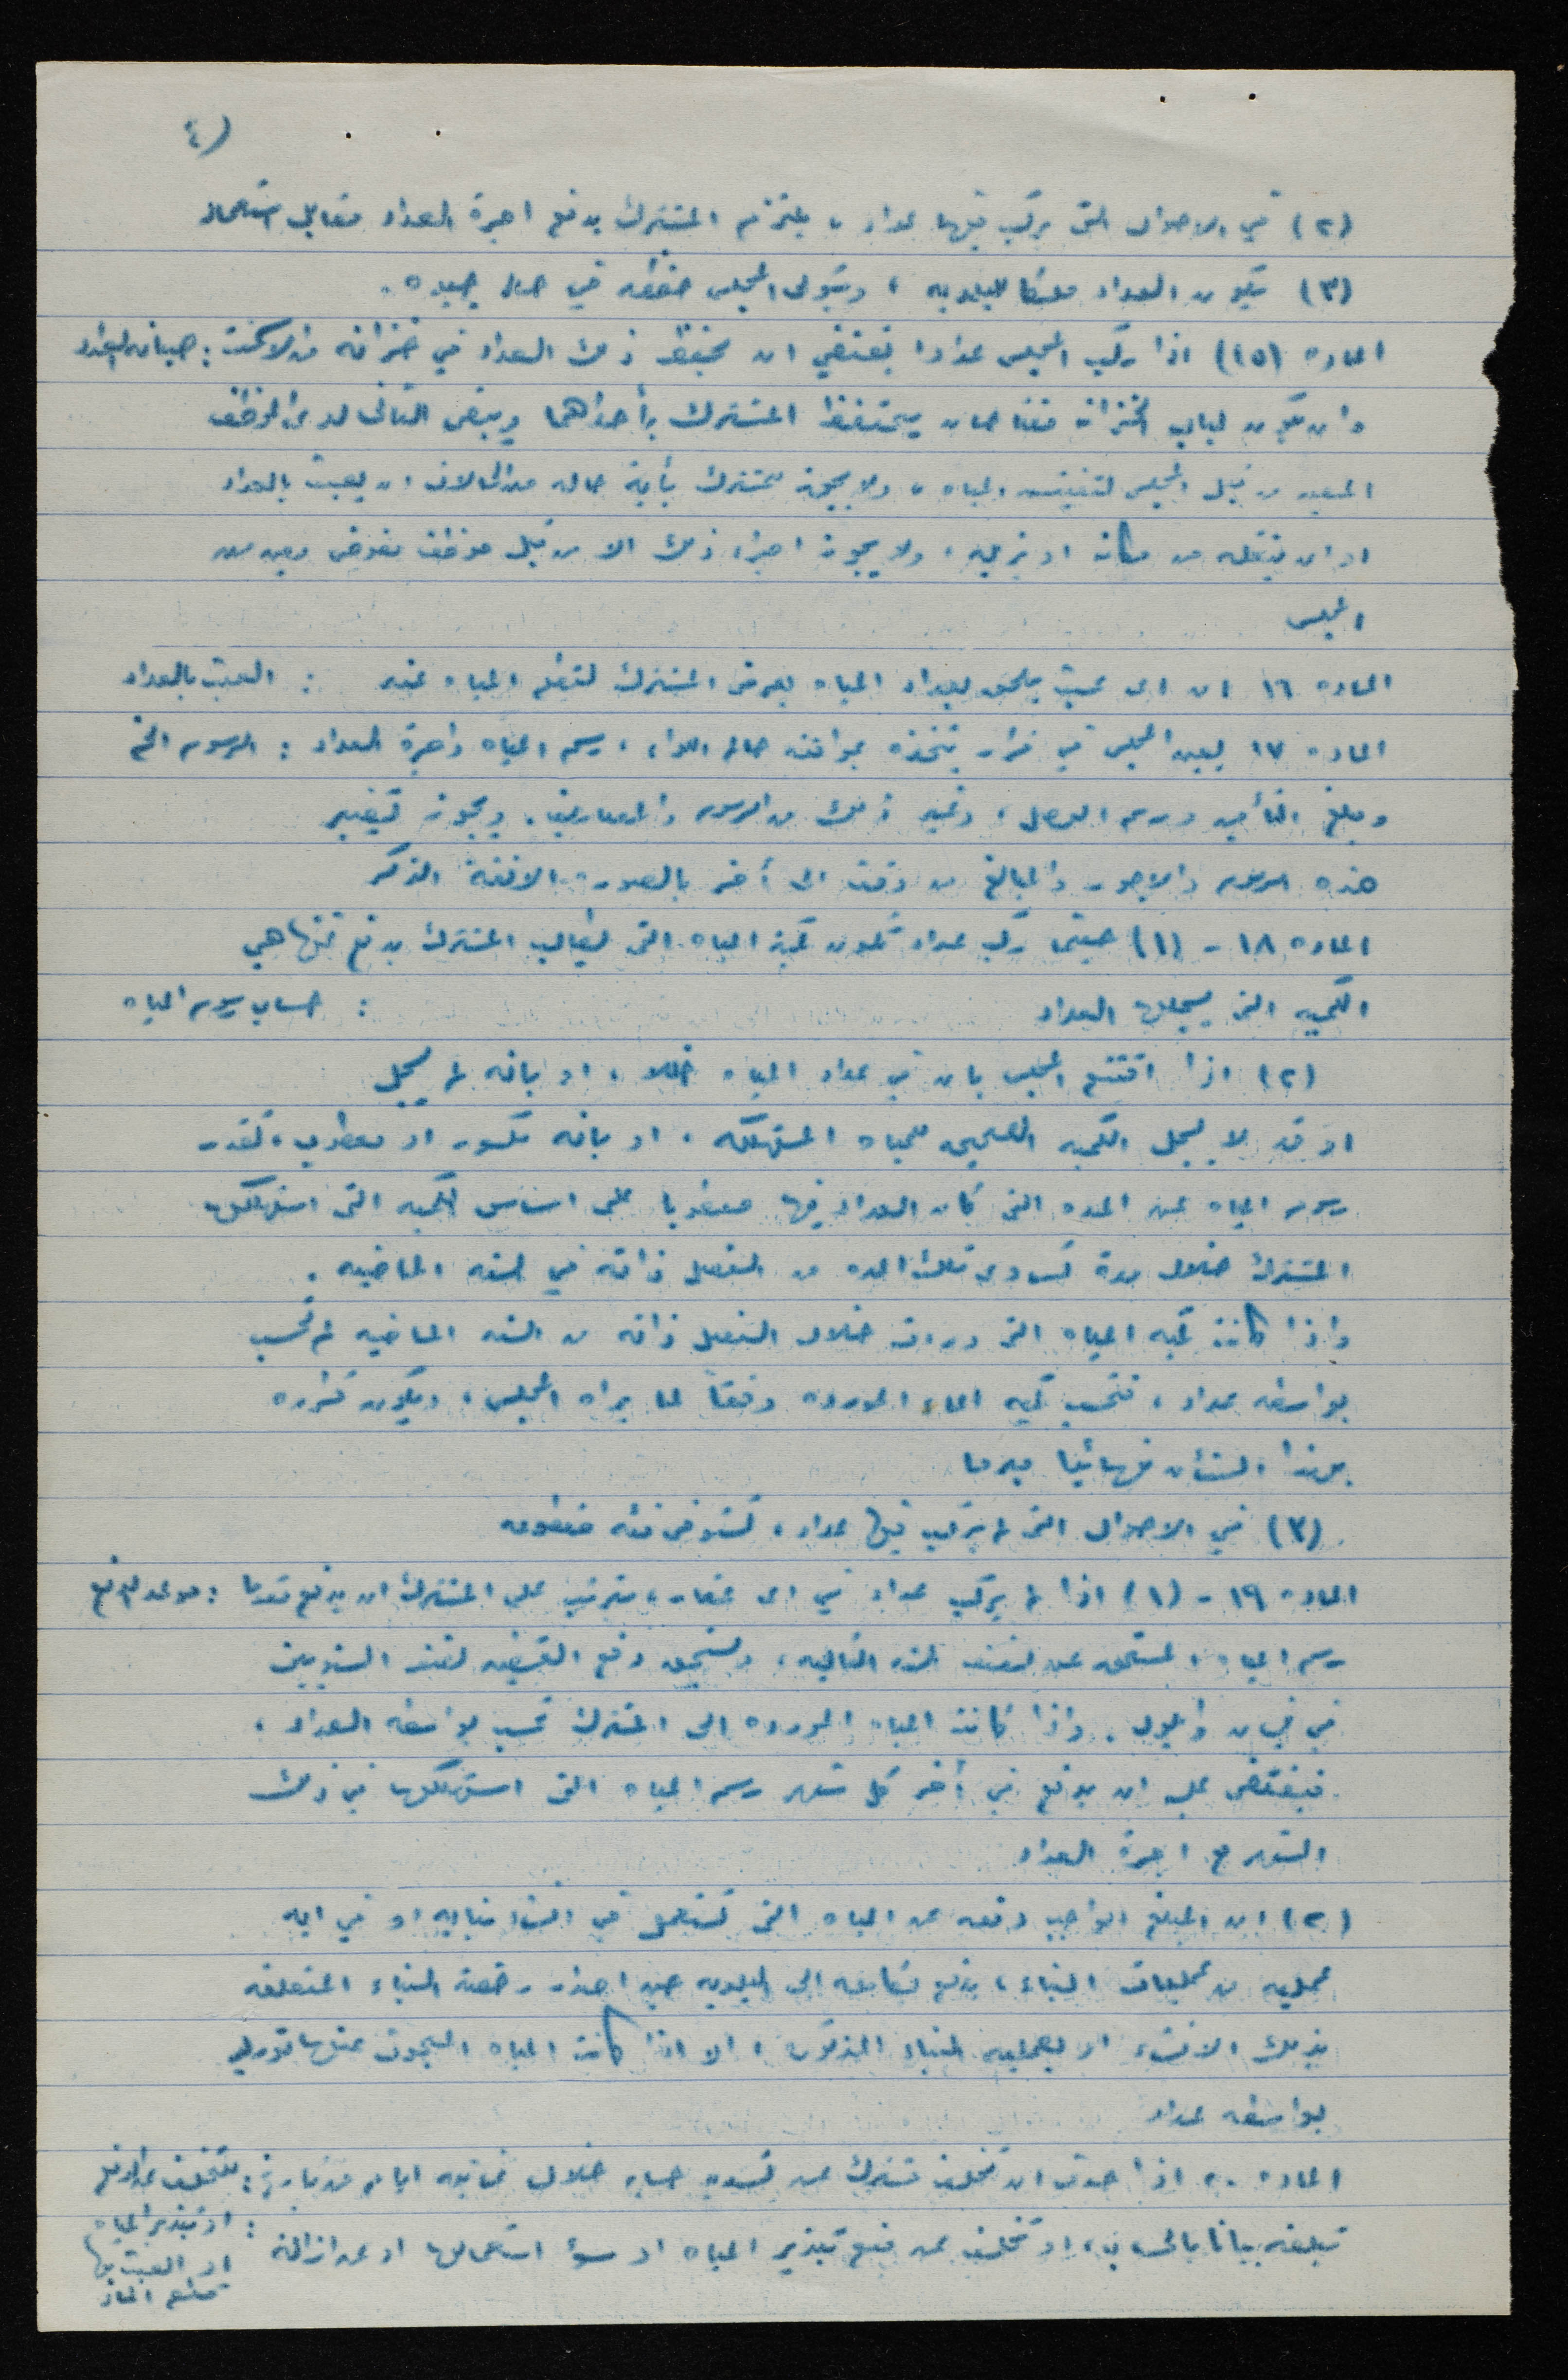 (٤
(٢) في الاحوال التي يركب فيها عداد ، يلتزم المشترك بدفع اجرة العداد مقابل استعماله
(٣) يكون العداد ملكا للبلديه ، ويتولى المجلس حفظه في حاله جيده .
الماده (١٥) اذا ركب المجلس عدادا يقتضي ان يحفظ ذلك العداد في خزانه من الاسمنت : صيانه العداد
وان يكون لباب الخزانه مفتاحان يحتفظ المشترك بأحداهما ويبقى الثاني لدى الموظف
المعين من قبل المجلس لتفتيش المياه ، ولا يجوز للمشترك بأية حاله من الحالات ان يعبث بالعداد
او ان ينقله من مكانه او يزيله ، ولا يجوز اجراء ذلك الا من قبل موظف مفوض من
المجلس
الماده ١٦ ان اي عبث يلحق بعداد المياه يعرض المشترك لقطع المياه عنه : العبث بالعداد
الماده ١٧ يعين المجلس في قرار يتخذه بموافقه حاكم اللواء ، رسم المياه واجرة العداد : الرسوم الخ
ومبلغ التأمين ورسم الوصل ، وغير ذلك من الرسوم والمصاريف . ويجوز تغيير
هذه الرسوم والاجور والمبالغ من وقت الى أخر بالصوره الانفة الذكر
الماده ١٨ - (١) حيثما ركب عداد تكون كمية المياه التي يطالب المشترك بدفع ثمنها هي
الكميه التي يسجلها العداد : حساب رسوم المياه
(٢) اذا اقتنع المجلس بان في عداد المياه خللا ، او بانه لم يسجل
او قد لا يسجل الكميه الصحيحه للمياه المستهلكه ، او بانه مكسور او معطوب ، تقدر
رسوم المياه عن المده التي كان العداد فيها معطوبا على اساس الكميه التي استهلكها
المشترك خلال مدة تساوي تلك المده من الفصل ذاته في السنه الماضيه .
واذا كانت كميه المياه التي وردت خلال الفصل ذاته من السنه الماضيه لم تحسب
بواسطه عداد ، فتحسب كميه الماء المورده وفقاً لما يراه المجلس ، ويكون قراره
بهذا الشأن نهائيا مبرما
(٣) في الاحوال التي لم يركب فيها عداد ، تستوفى فئه مقطوعه
الماده ١٩ - (١) اذا لم يركب عداد في اي عقار ، يترتب على المشترك ان يدفع مقدما : موعد الدفع
رسم المياه المستحق عن نصف السنه التاليه ، ويستحق دفع القسطين نصف السنويين
في نيسان وايلول . واذا كانت المياه المورده الى المشترك تحسب بواسطه العداد ،
فيقتضى عليه ان يدفع في أخر كل شهر رسم المياه التي استهلكها في ذلك
الشهر مع اجرة العداد
(٢) ان المبلغ الواجب دفعه عن المياه التي تستعمل في انشاء بنايه او في ايه
عمليه من عمليات البناء ، يدفع بكامله الى البلديه حين اصدار رخصة البناء المتعلقه
بذلك الانشاء او بعمليه البناء المذكوره ، الا اذا كانت المياه المبحوث عنها تورد
بواسطه عداد
الماده ٢٠ اذا حدث ان تخلف مشترك عن تسديد حسابه خلال ثمانيه ايام من تاريخ : التخلف عن الدفع
تبليغه بيانا بالحساب ، او تخلف عن منع تبذير المياه او سوء استعمالها او عن ازالة : او تبذير المياه
او العبث بها